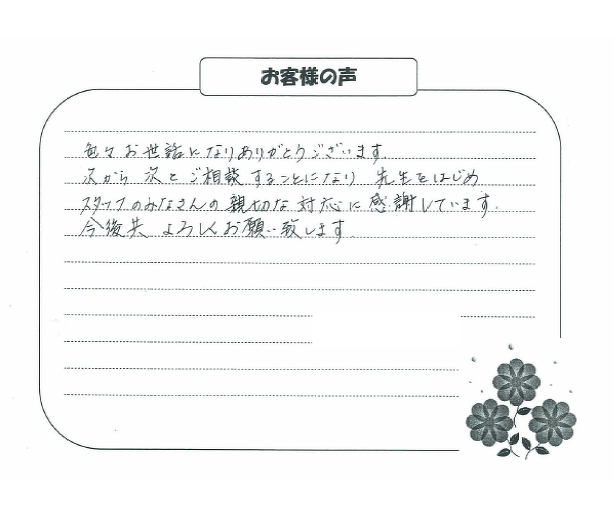 お客様の声
色々お世話になりありがとうございます。
次から次とご相談することになり 先生をはじめ
スタッフのみなさんの親切な対応に感謝しています。
今後共よろしくお願い致します